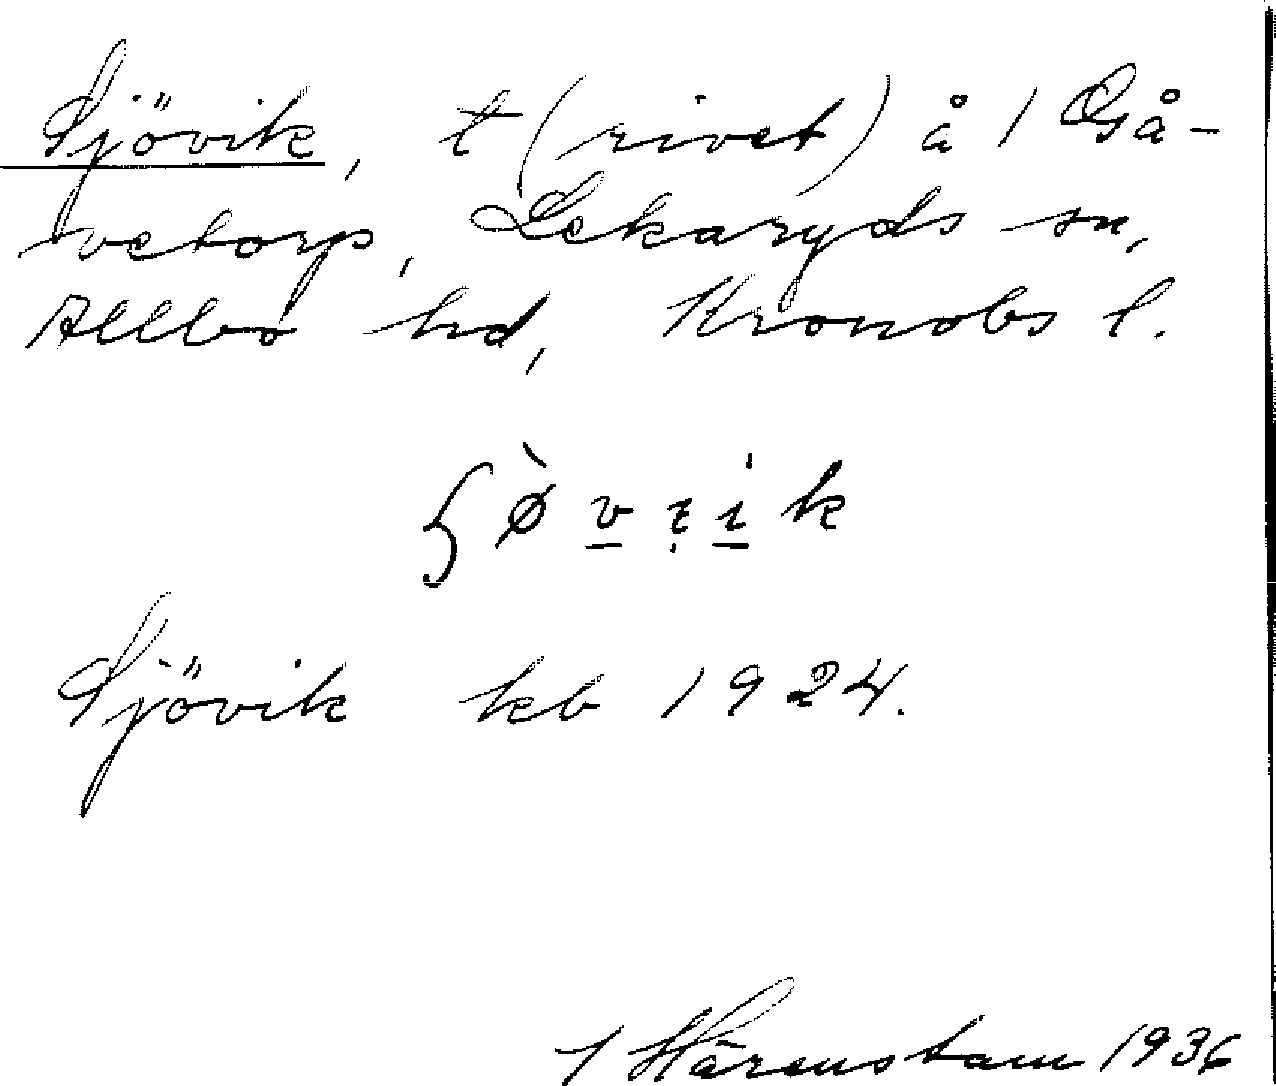 Sjövik, t (rivet) å 1 Gå-
vetorp, Lekaryds sn,
Allbo hd, Kronobs l.
Sjövik kb 1924.
Härenstam 1936